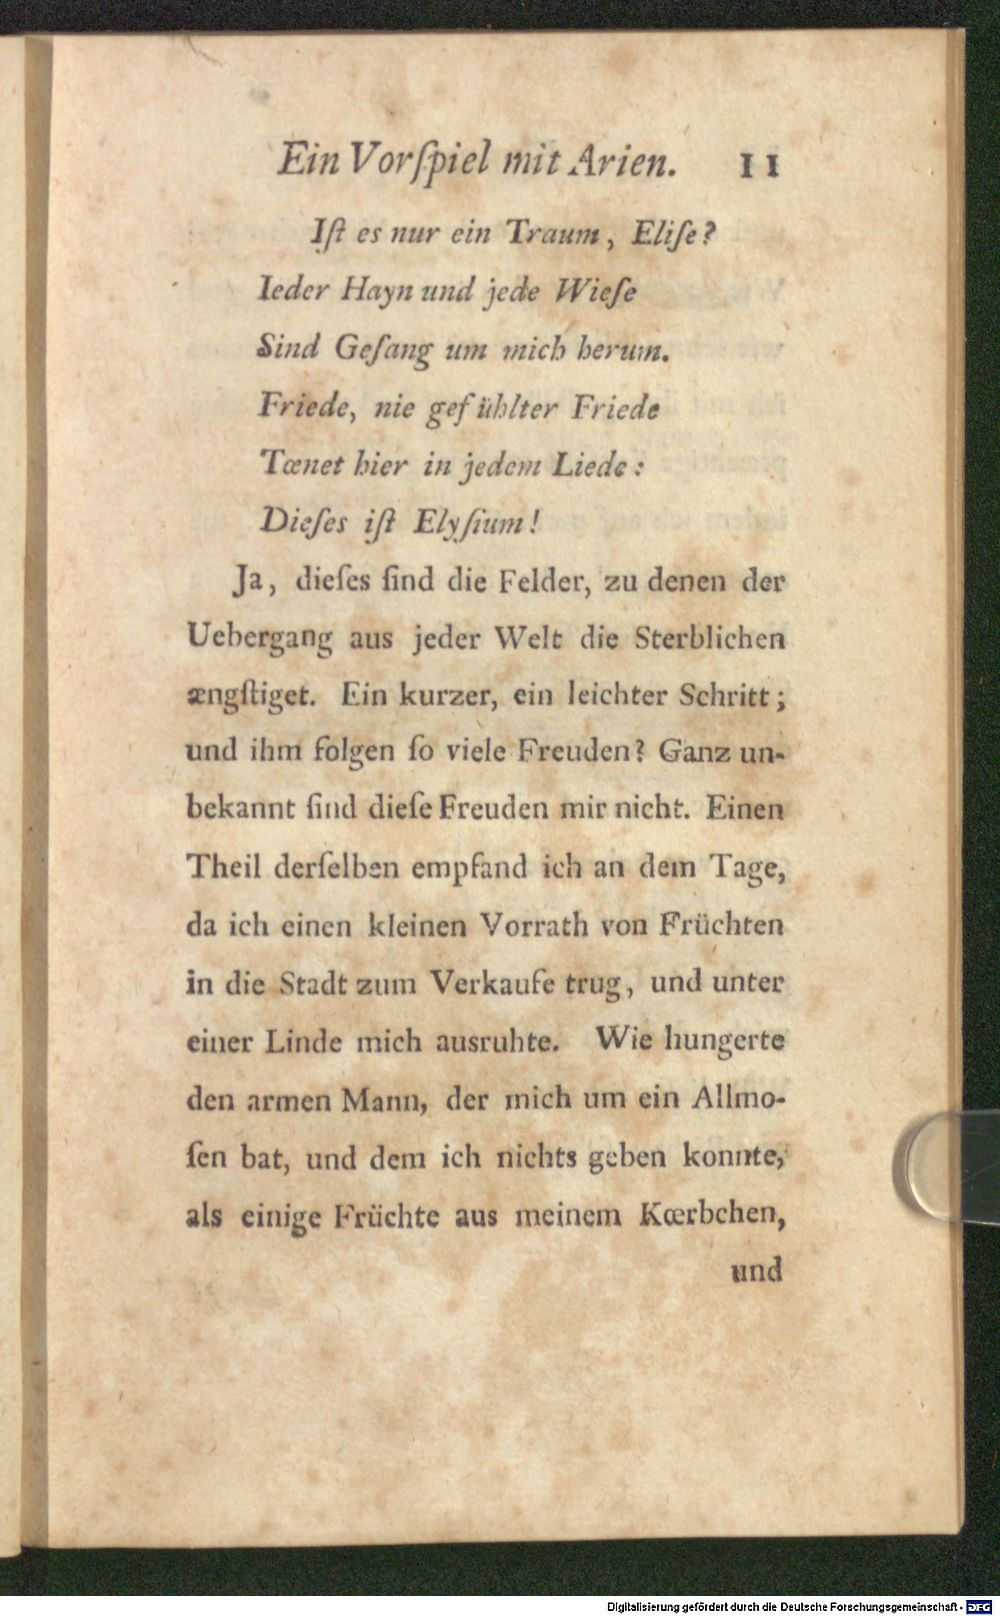 Ein Vorſpiel mit Arien. 11
Iſt es nur ein Traum, Eliſe?
Ieder Hayn und jede Wieſe
Sind Geſang um mich herum.
Friede, nie gefühlter Friede
Tœnet hier in jedem Liede:
Dieſes iſt Elyſium!
Ja, dieſes ſind die Felder, zu denen der
Uebergang aus jeder Welt die Sterblichen
ængſtiget. Ein kurzer, ein leichter Schritt;
und ihm folgen ſo viele Freuden? Ganz un-
bekannt ſind dieſe Freuden mir nicht. Einen
Theil derſelben empfand ich an dem Tage,
da ich einen kleinen Vorrath von Früchten
in die Stadt zum Verkaufe trug, und unter
einer Linde mich ausruhte. Wie hungerte
den armen Mann, der mich um ein Allmo-
ſen bat, und dem ich nichts geben konnte,
als einige Früchte aus meinem Kœrbchen,
und
Digitalisierung gefördert durch die Deutsche Forschungsgemeinschaft - DFG